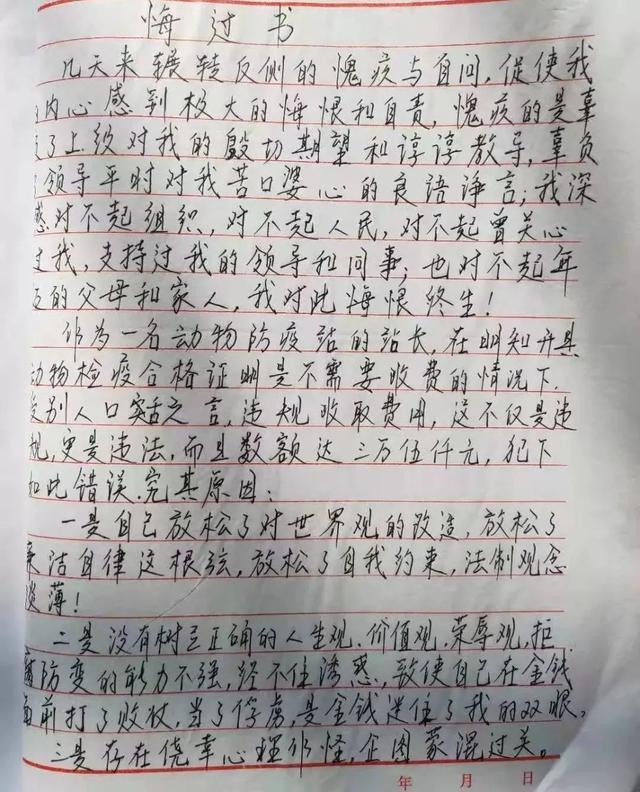 悔过书
几天来辗转反侧的愧疚与自问,促使我
内心感到极大的悔恨和自责,愧疚的是辜
了上级对我的殷切期望和谆谆教导,辜负
领导平时对我苦口婆心的良语诤言;我深
感对不起组织,对不起人民,对不起曾关心
过我,支持过我的领导和同事;也对不起年
迈的父母和家人,我对此悔恨终生!
作为一名动物防疫站的站长,在明知开具
动物检疫合格证明是不需要收费的情况下,
别人口之言,违规收取费用,这不仅是违
规,更是违法,而且数额达三万伍仟元,犯下
如此错误.究其原因:
一是自己放松了对世界观的改造,放松了
廉洁自律这根弦,放松了自我约束,法制观念
淡薄!
二是没有树立正确的人生观.价值观.荣辱观,拒
腐防变的能力不强,经不住诱惑,致使自己在金钱
面前打了败仗,当了俘虏,是金钱迷住了我的双眼,
三是存在侥幸心理作怪,企图蒙混过关。
年 月 日